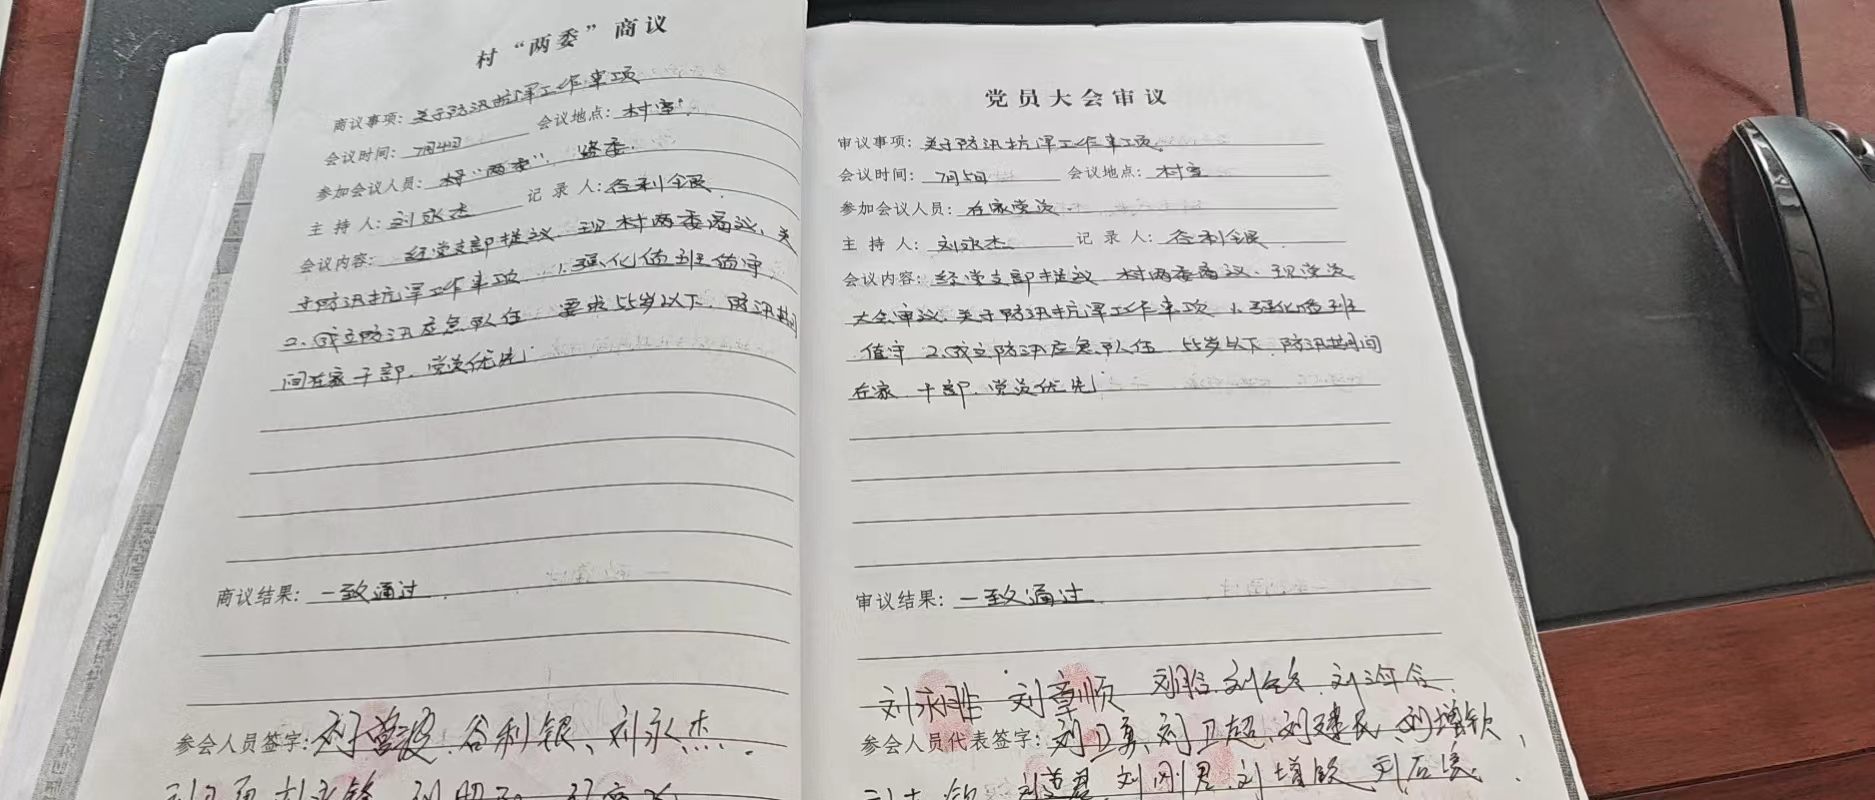 村“两委”商议
商议事项：关于防汛抗旱工作事项
会议时间：7月4日 会议地点：村室
参加会议人员：村“两委”、监委.
主持人：刘永杰 记录人：谷利银
会议内容：经党支部提议、现村两委商议、关
于防汛抗旱工作事项 1.强化值班值守
2.成立防汛应急队伍 要求55岁以下、防汛期
间在家干部、党员优先
商议结果：一致通过.
参会人员签字：谷利银、刘永杰.
党员大会审议
审议事项：关于防汛抗旱工作事项.
会议时间：7月5日 会议地点：村室
参加会议人员：在家党员.
主持人：刘永杰 记录人：谷利银.
会议内容：经党支部提议 村两委商议、现党员
大会审议、关于防汛抗旱工作事项 1.强化值班
值守 2.成立防汛应急队伍 55岁以下、防汛期间
在家、干部、党员优先
审议结果：一致通过.
刘章顺
参会人员代表签字：刘卫超、刘建民、刘增钦、